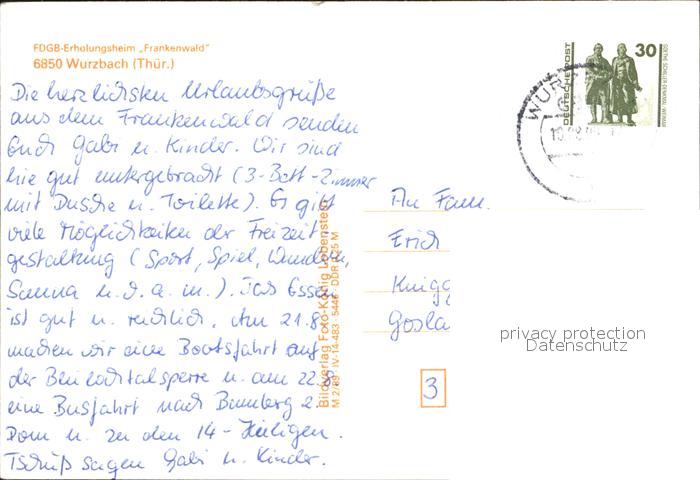 FDGB-Erholungsheim „Frankenwald"
6850 Wurzbach (Thür.)
Die herzlichsten Urlaubsgrüße
aus dem Frankenwald senden
Euch Gabi u. Kinder. Wir sind
hie gut untergebracht (3-Bett-Zimmer
mit Dusche u. Toilette). Es gibt
viele Möglichkeiten der Freizeit
gestaltung (Sport, Spiel, Wandern,
Sauna u. d. a. m.). Das Essen
ist gut u. reichlich. Am 21.8.
machen wir eine Bootsfahrt auf
der Bleilochtalsperre u. am 22.8.
eine Busfahrt nach Bamberg z.
Dom u. zu den 14-Heiligen.
Tschüß sagen Gabi u. Kinder.
Bild und Verlag Foto-König Lobenstein
M 2/89 IV-14-483 DDR 0,25 M
DEUTSCHE POST
30
GOETHE-SCHILLER-DENKMAL WEIMAR
WURZ
An Fam.
Erich
Knigg
Gosla
3
privacy protection
Datenschutz